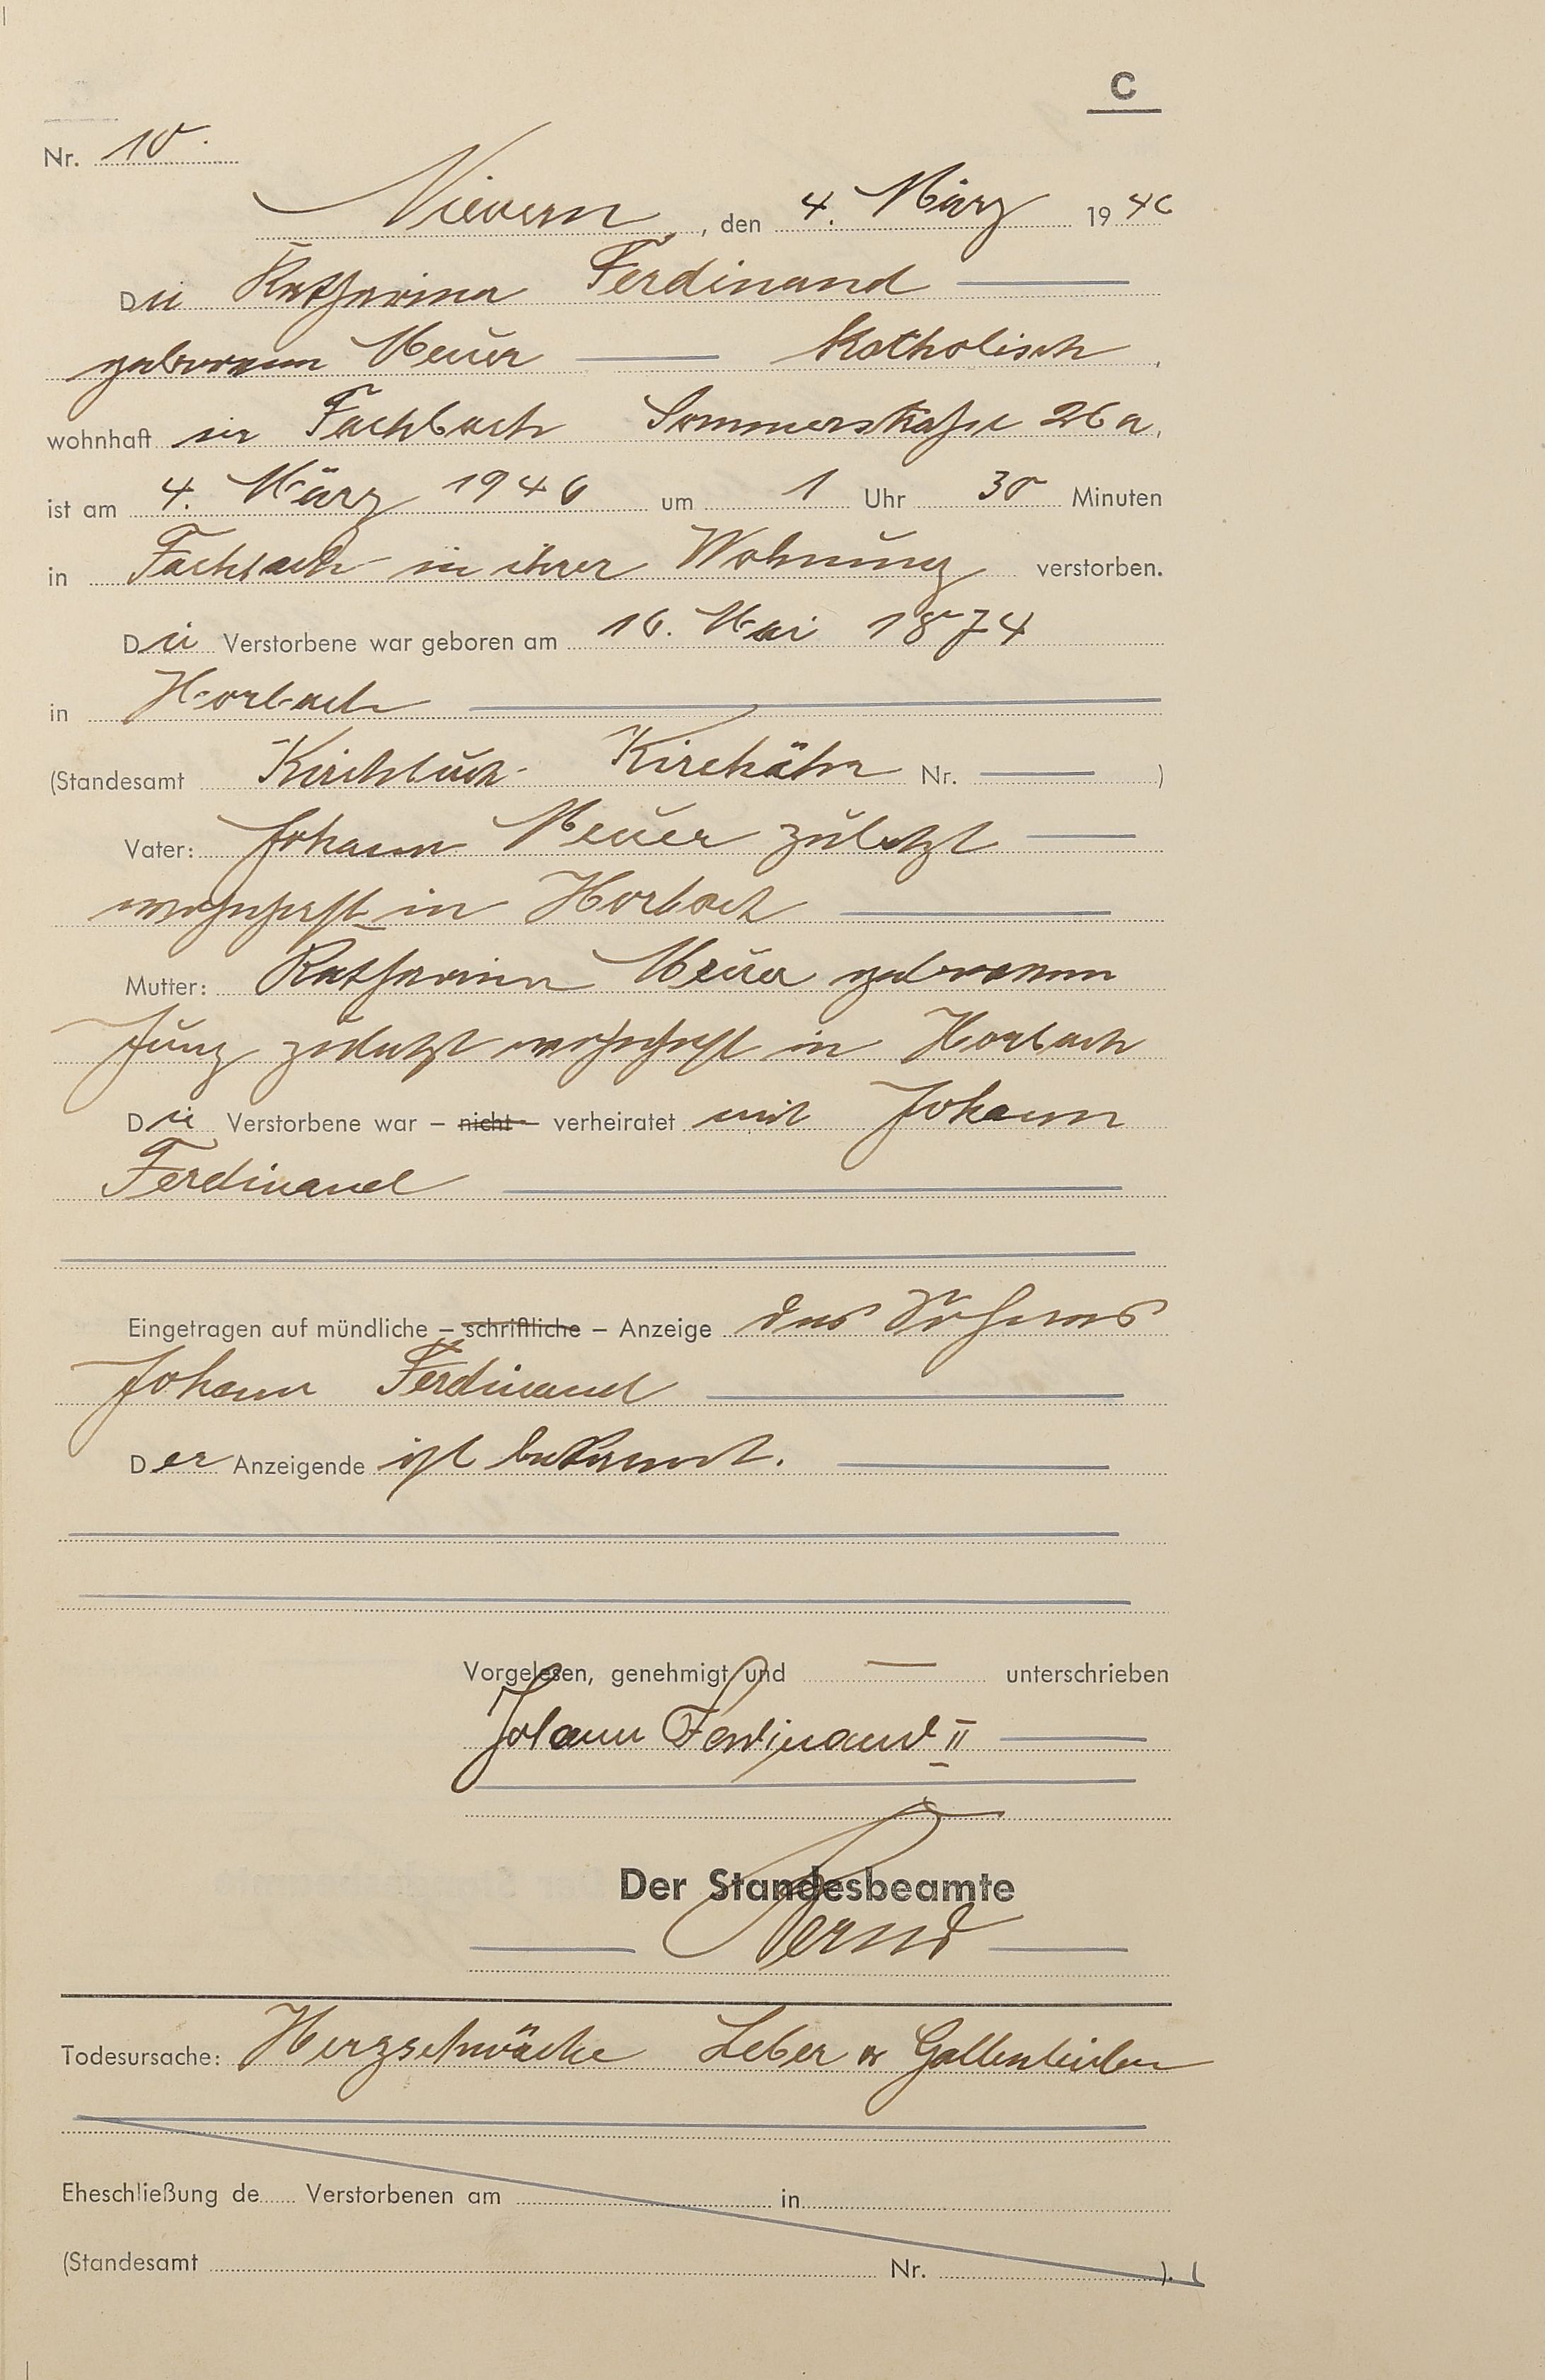 C
Nr. 10.
Nievern, den 4. März 1946
Die Katharina Ferdinand
geborenen Meuer katholisch,
wohnhaft in Fachbach Sommerstraße 26a,
ist am 4. März 1946 um 1 Uhr 30 Minuten
in Fachbach in ihrer Wohnung verstorben.
Die Verstorbene war geboren am 16. Mai 1874
in Horbach
(Standesamt Kirchbuch Kirchähr Nr. )
Vater: Johann Meuer zuletzt
wohnhaft in Horbach
Mutter: Katharina Meuer geborenen
Jung zuletzt wohnhaft in Horbach
Die Verstorbene war – nicht – verheiratet mit Johann
Ferdinand
Eingetragen auf mündliche – schriftliche – Anzeige des Sohnes
Johann Ferdinand
Der Anzeigende ist bekannt.
Vorgelesen, genehmigt und — unterschrieben
Johann Ferdinand II
Der Standesbeamte
Todesursache: Herzschwäche Leber u Gallenleiden
Eheschließung de Verstorbenen am in
(Standesamt Nr. ).